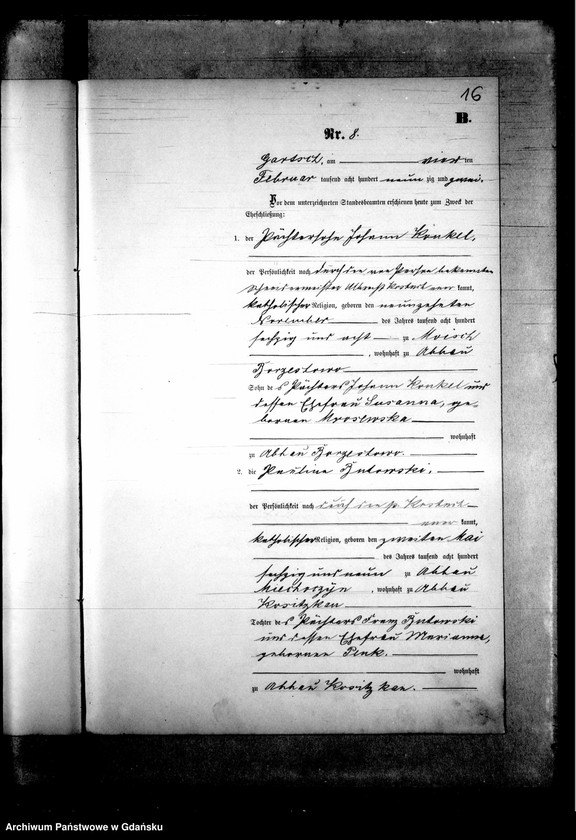 16
B.
Nr. 8.
Gartsch, am vier ten
Februar tausend acht hundert neun zig und zwei.
Vor dem unterzeichneten Standesbeamten erschienen heute zum Zweck der
Eheschließung:
1. der Pächtersohn Johann Konkel,
der Persönlichkeit nach durch den von Person bekannten
Albrecht Kostuch aner kannt,
katholischer Religion, geboren den neunzehnten
November des Jahres tausend acht hundert
sechzig und acht zu Moisch
, wohnhaft zu Abbau
Borzestowo
Sohn des Pächters Johann Konkel und
dessen Ehefrau Susanna, ge-
bornen Mroslewska
wohnhaft
zu Abbau Borzestowo.
2. die Pauline Butowski,
der Persönlichkeit nach durch den p. Kostuch
aner kannt,
katholischer Religion, geboren den zweiten Mai
des Jahres tausend acht hundert
sechzig und neun zu Abbau
Miechoszyn , wohnhaft zu Abbau
Kositzken
Tochter des Pächters Franz Butowski
und dessen Ehefrau Marianna,
gebornen Plenk.
wohnhaft
zu Abbau Kositzken.
Archiwum Państwowe w Gdańsku